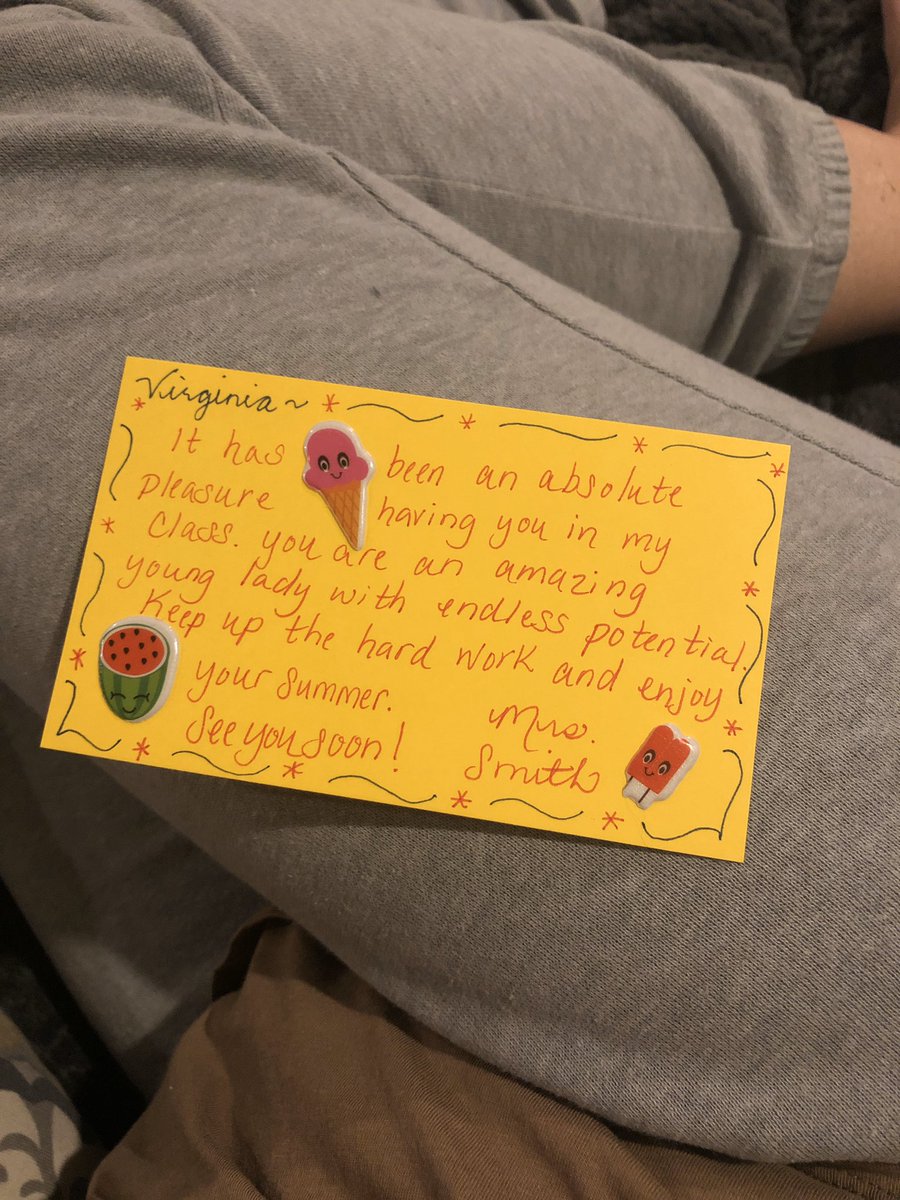 Virginia~
It has been an absolute
pleasure having you in my
class. you are an amazing
young lady with endless potential.
Keep up the hard work and enjoy
your summer.
See you soon!
Mrs.
Smith